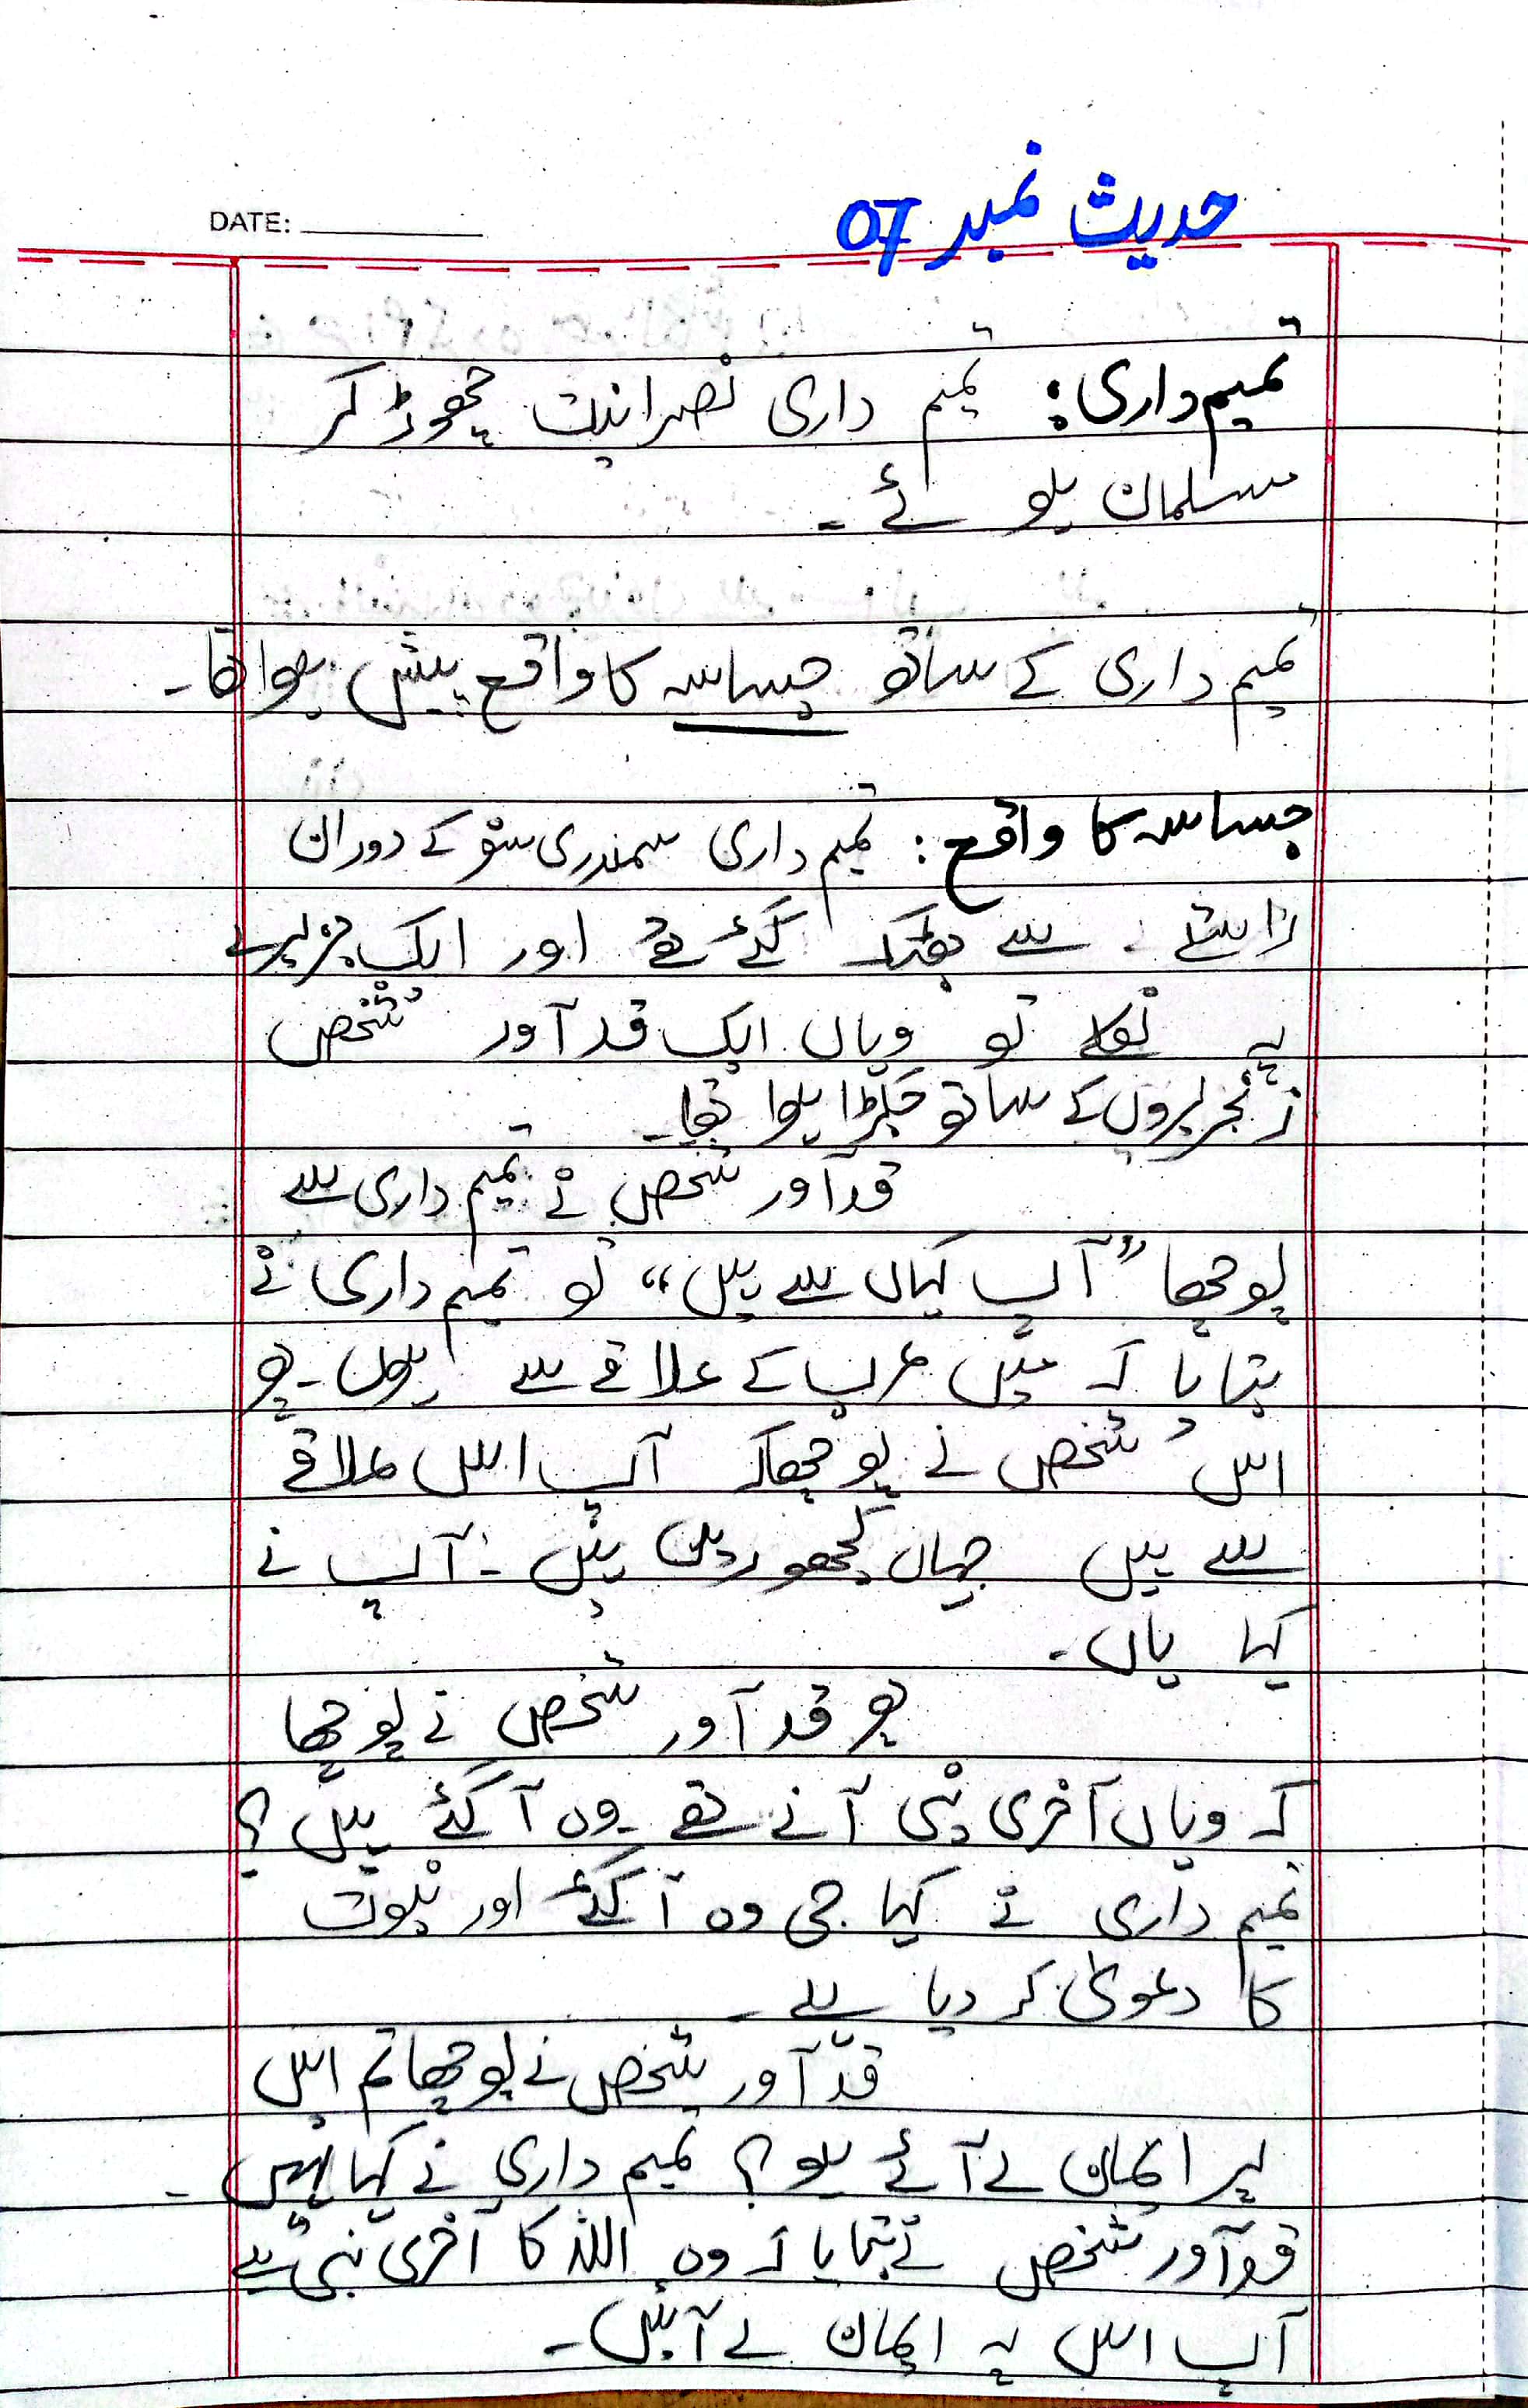 حدیث نمبر 07
DATE:
تمیم داری: تمیم داری نصرانیت چھوڑ کر
مسلمان ہو ئے۔
تمیم داری کے ساتھ جساسہ کا واقع پیش ہوا تھا۔
جساسہ کا واقع: تمیم داری سمندری سفر کے دوران
راستے سے بھٹک گئے تھے اور ایک جزیرے
پہ تو وہاں ایک قد آور شخص
زنجیروں کے ساتھ جکڑا ہوا تھا۔
قد آور شخص نے تمیم داری سے
پوچھا "آپ کہاں سے ہیں" تو تمیم داری نے
بتایا کہ میں عرب کے علاقے سے ہوں۔ پھر
اس شخص نے پوچھا کہ آپ اس علاقے
سے ہیں جہاں کھجوریں ہیں۔ آپ نے
کہا ہاں۔
پھر قد آور شخص نے پوچھا
کہ وہاں آخری نبی آنے تھے وہ آ گئے ہیں؟
تمیم داری نے کہا جی وہ آ گئے اور نبوت
کا دعویٰ کر دیا ہے۔
قد آور شخص نے پوچھا تم اس
پر ایمان لے آئے ہو؟ تمیم داری نے کہا نہیں۔
قد آور شخص نے بتایا کہ وہ اللہ کا آخری نبی ہے
آپ اس پہ ایمان لے آئیں۔